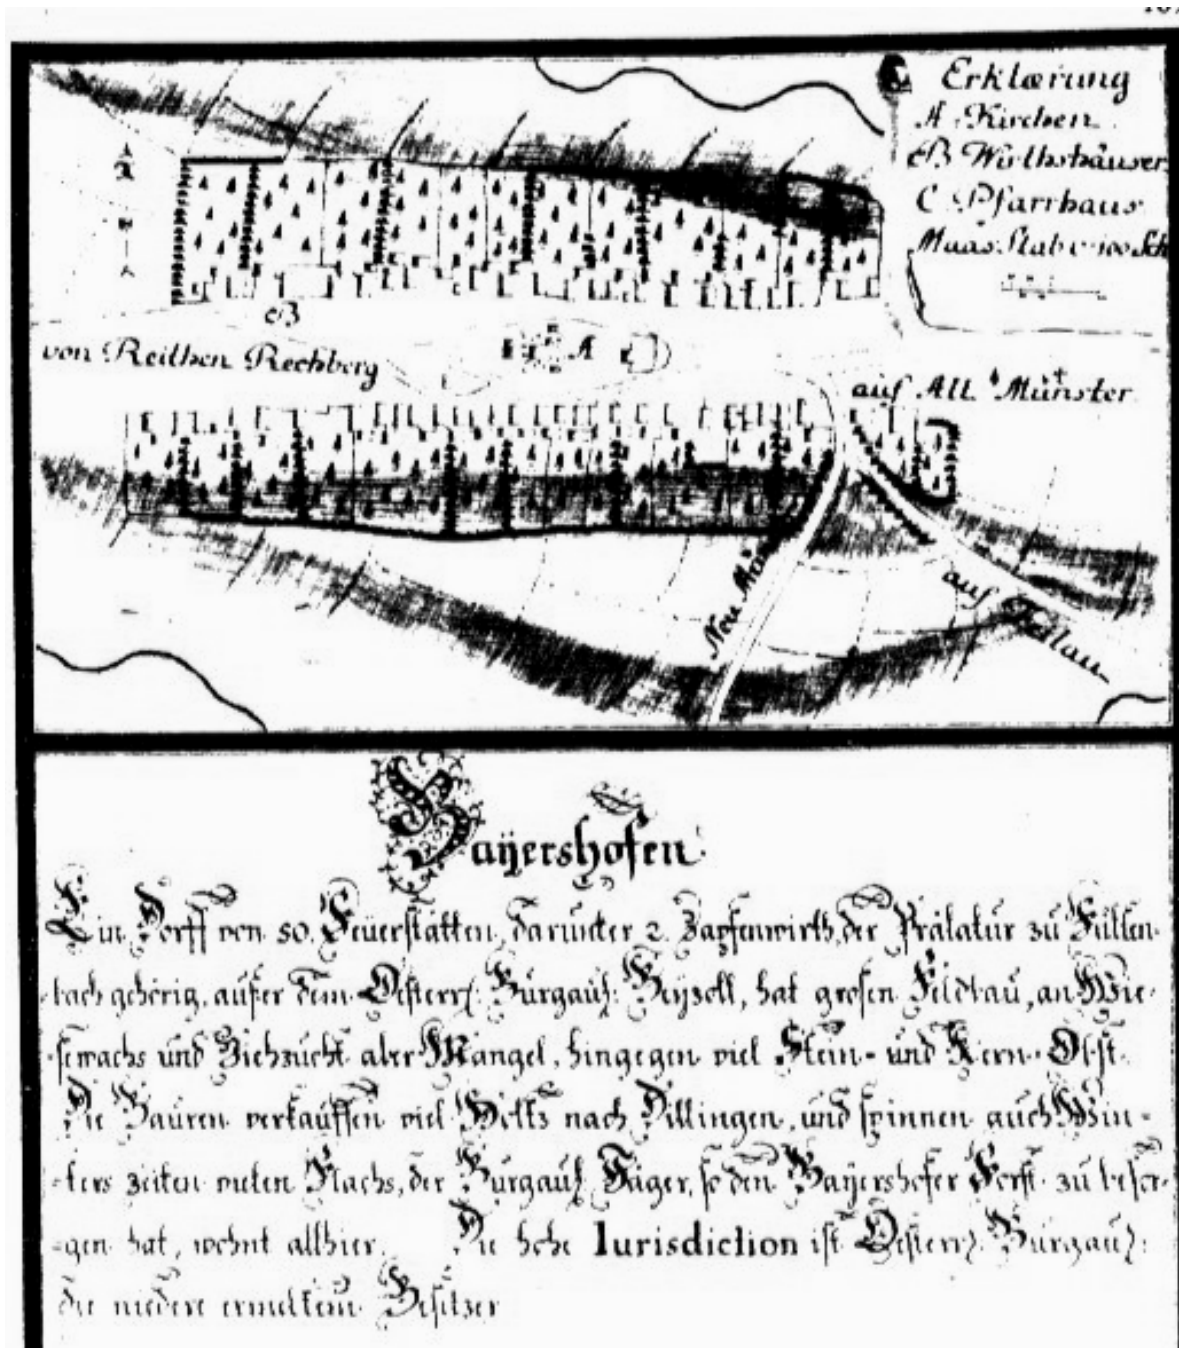 Erklærung
A Kirchen
B Wirthshäuser
C Pfarrhaus
Maas Stab v 100 Sch
B
von Reithen Rechberg
A
auf Alt Münster
Neu Mün
auf Feilau
Bayershofen
Ein Dorff von 50. Feüerstätten, darunter 2. Zapfenwirth, der Prälatur zu Fülten-
-bach gehörig, außer dem Oesterr: Burgau: Beyzoll, hat großen Feldbau, an Wie-
-sewachs und Viehzucht aber Mangel, hingegen viel Stein- und Kern-Obst.
Die Bauren verkauffen viel Holtz nach Dillingen, und spinnen auch Win-
-ters zeiten vielen Flachs, der Burgau: Jäger, so den Bayershofer Forst zu besor-
-gen hat, wohnt allhier. Die hohe Iurisdiction ist Oesterr: Burgau:
die niedere ermeltem Besitzer